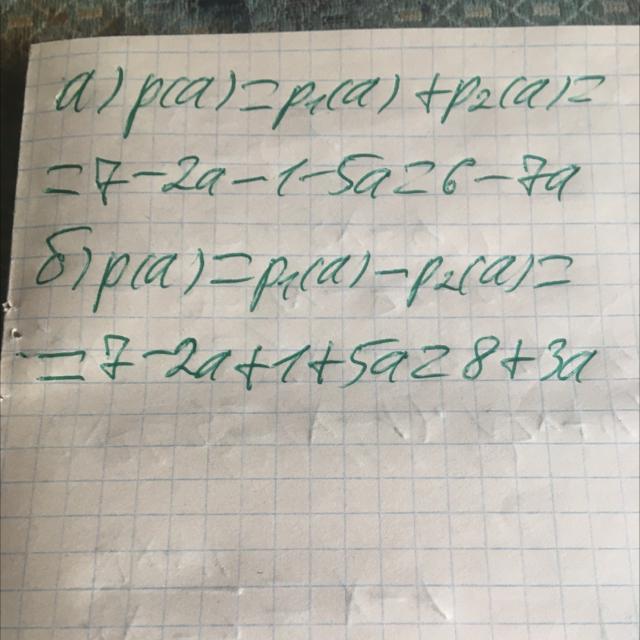 а) p(a)=p₁(a)+p₂(a)=
=7-2a-1-5a=6-7a
б) p(a)=p₁(a)-p₂(a)=
=7-2a+1+5a=8+3a